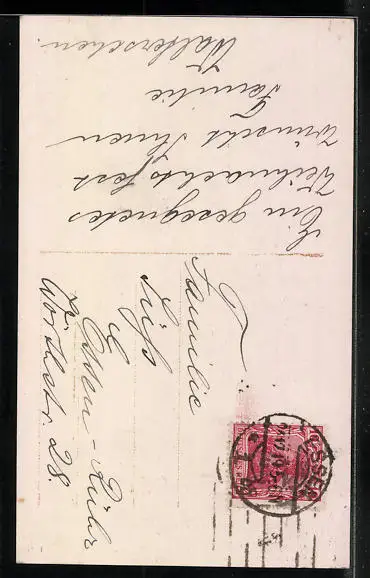 Ein gesegnetes
Weihnachtsfest
wünscht Ihnen
Familie
Familie
Essen-Ruhr
Wörthstr. 28.
ESSEN